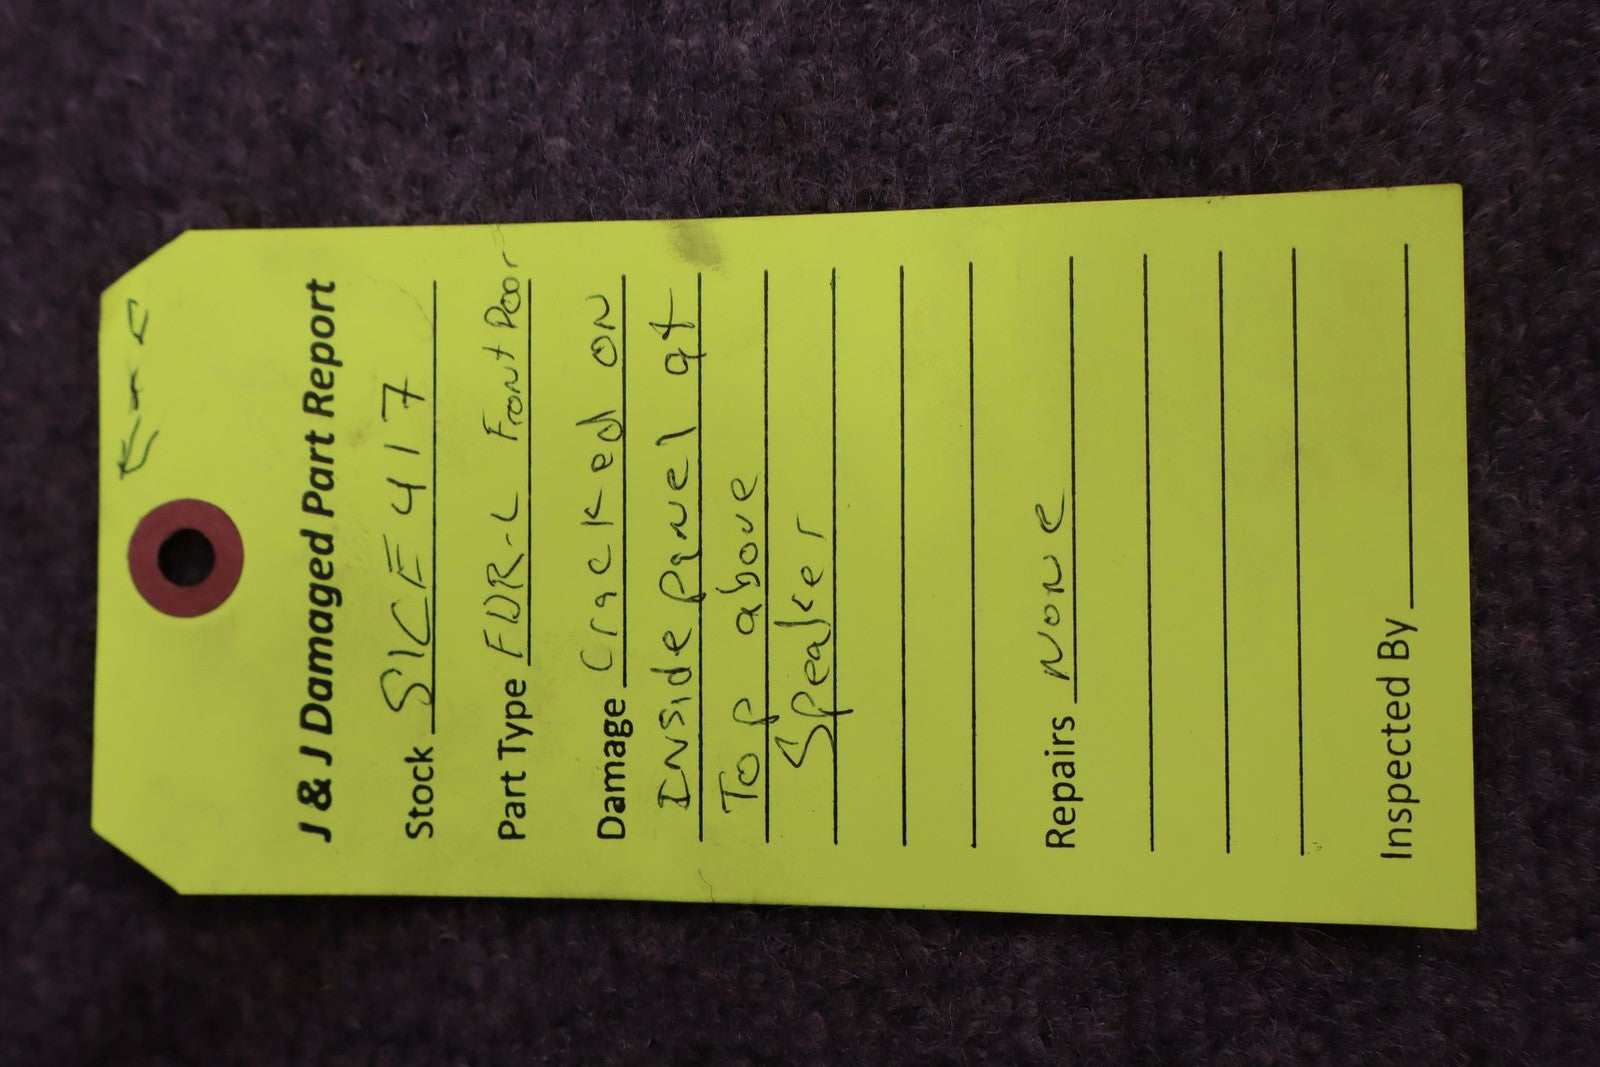 J & J Damaged Part Report
Stock SICE417
Part Type FDR-L Front Door
Damage Cracked ON
INSide PaNel at
Top above
Speaker
Repairs NONe
Inspected By